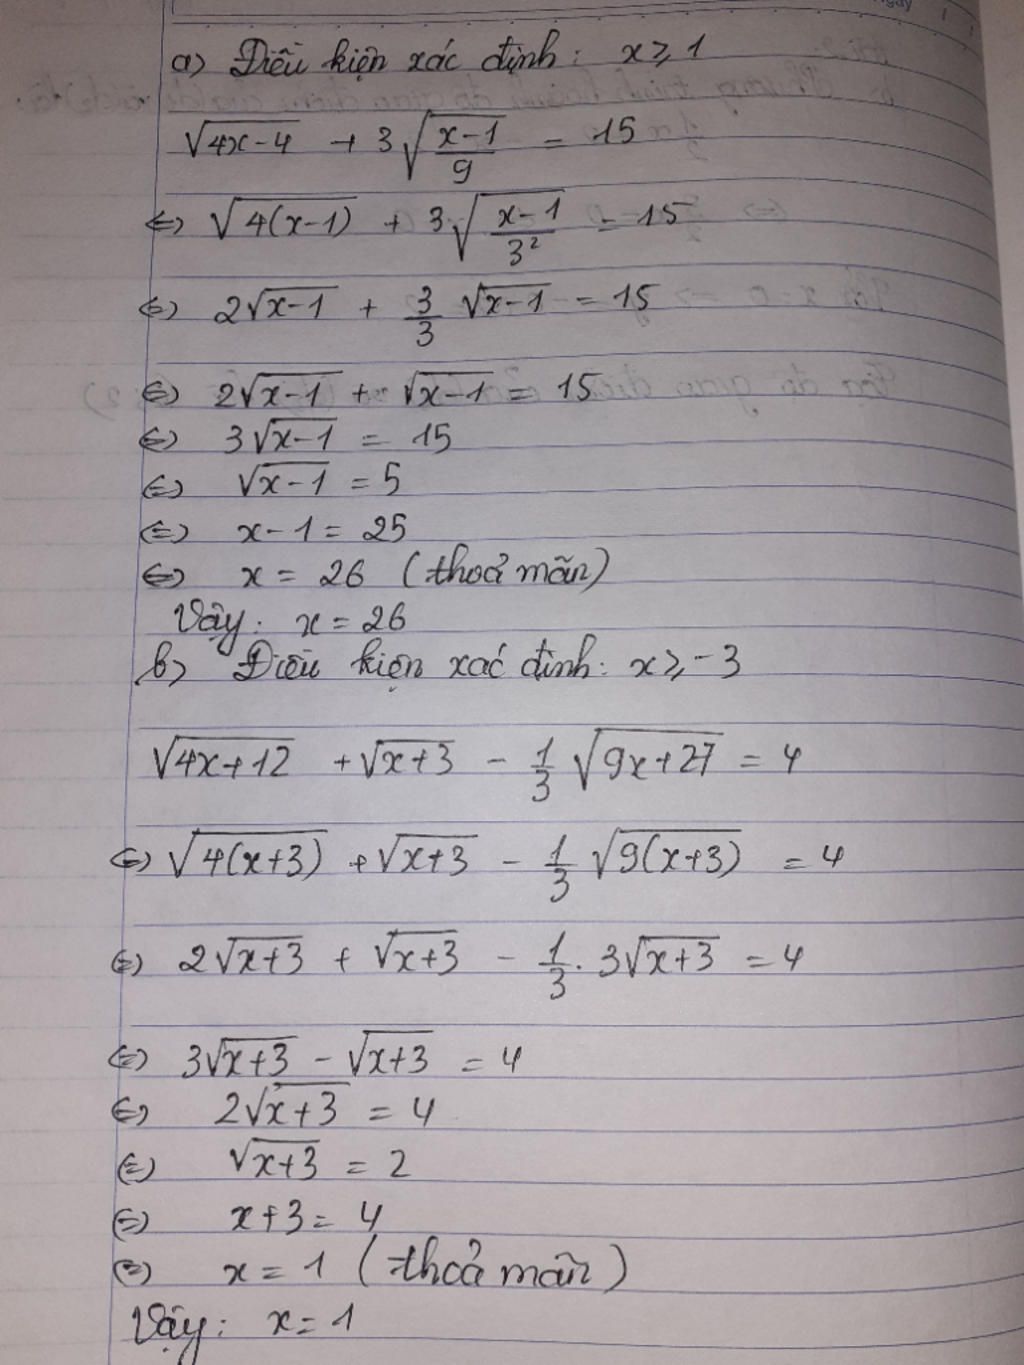 a) Điều kiện xác định: x ⩾ 1
√(4x-4) + 3√((x-1)/9) = 15
⇔ √(4(x-1)) + 3√((x-1)/3²) = 15
⇔ 2√(x-1) + 3/3 √(x-1) = 15
⇔ 2√(x-1) + √(x-1) = 15
⇔ 3√(x-1) = 15
⇔ √(x-1) = 5
⇔ x-1 = 25
⇔ x = 26 (thoả mãn)
Vậy: x = 26
b) Điều kiện xác định: x ⩾ -3
√(4x+12) + √(x+3) - 1/3 √(9x+27) = 4
⇔ √(4(x+3)) + √(x+3) - 1/3 √(9(x+3)) = 4
⇔ 2√(x+3) + √(x+3) - 1/3 . 3√(x+3) = 4
⇔ 3√(x+3) - √(x+3) = 4
⇔ 2√(x+3) = 4
⇔ √(x+3) = 2
⇔ x+3 = 4
⇔ x = 1 (thoả mãn)
Vậy: x = 1